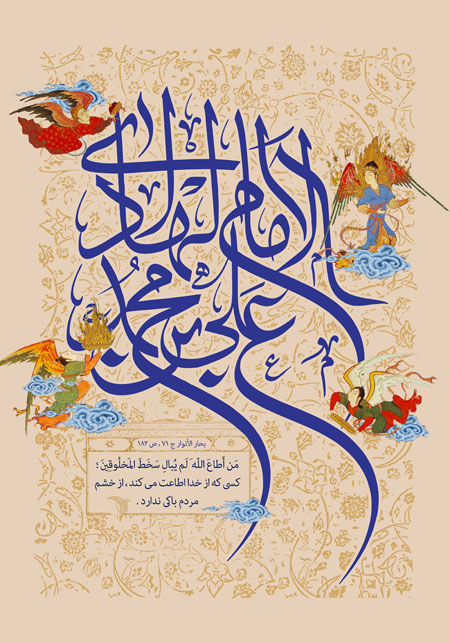 الامام الهادی
علی بن محمد
بحار الأنوار ج ۷۱ ، ص ۱۸۲
مَن أطاعَ اللّهَ لَم يُبالِ سَخَطَ المَخلُوقينَ ؛
کسی که از خدا اطاعت می کند، از خشم
مردم باکی ندارد .